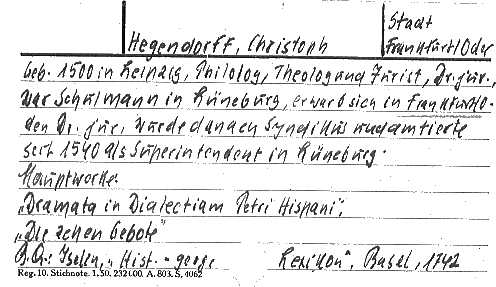 Hegendorff, Christoph
Stadt
Frankfurt/Oder
geb. 1500 in Leipzig, Philolog, Theolog und Jurist, Dr. jur.,
war Schulmann in Lüneburg, erwarb sich in Frankfurt/O.
den Dr. jur., wurde danach Syndikus und amtierte
seit 1540 als Superintendent in Lüneburg.
Hauptwerke:
"Dramata in Dialectiam Petri Hispani",
"Die zehen Gebote"
Iselin, "Hist. - geogr. Lexikon", Basel, 1742
Reg. 10. Stichnote. 1. 50. 232 I 00. A. 803. S. 4062